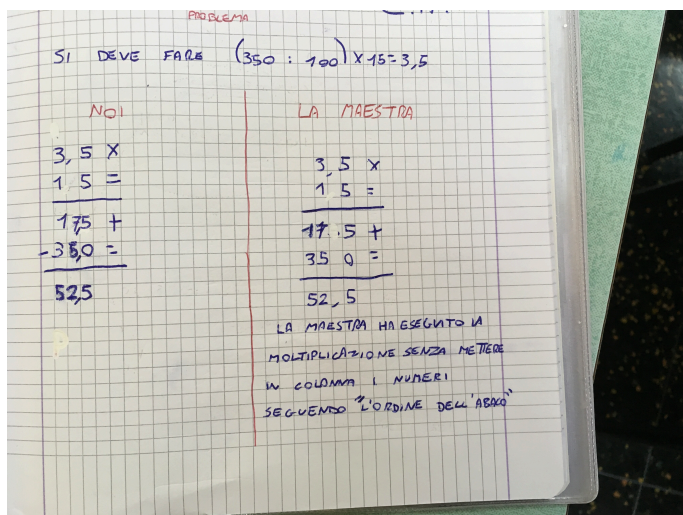 PROBLEMA
SI DEVE FARE (350 : 100) X 15 = 3,5
NOI
3, 5 X
1 5 =
17,5 +
-35,0 =
52,5
LA MAESTRA
3, 5 X
1 5 =
17.5 +
35 0 =
52, 5
LA MAESTRA HA ESEGUITO LA
MOLTIPLICAZIONE SENZA METTERE
IN COLONNA I NUMERI
SEGUENDO "L'ORDINE DELL'ABACO"